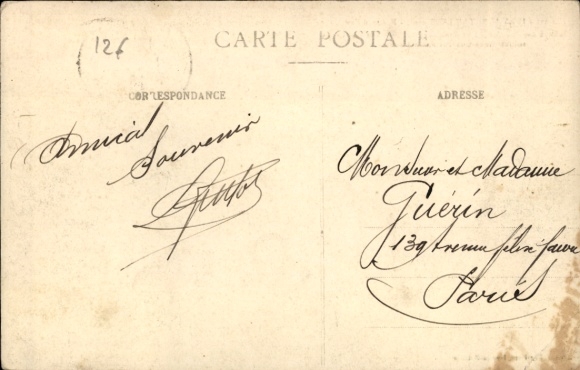 126
CARTE POSTALE
CORRESPONDANCE
ADRESSE
Amical
Souvenir
Monsieur et Madame
Guérin
139 Avenue félix faure
Paris